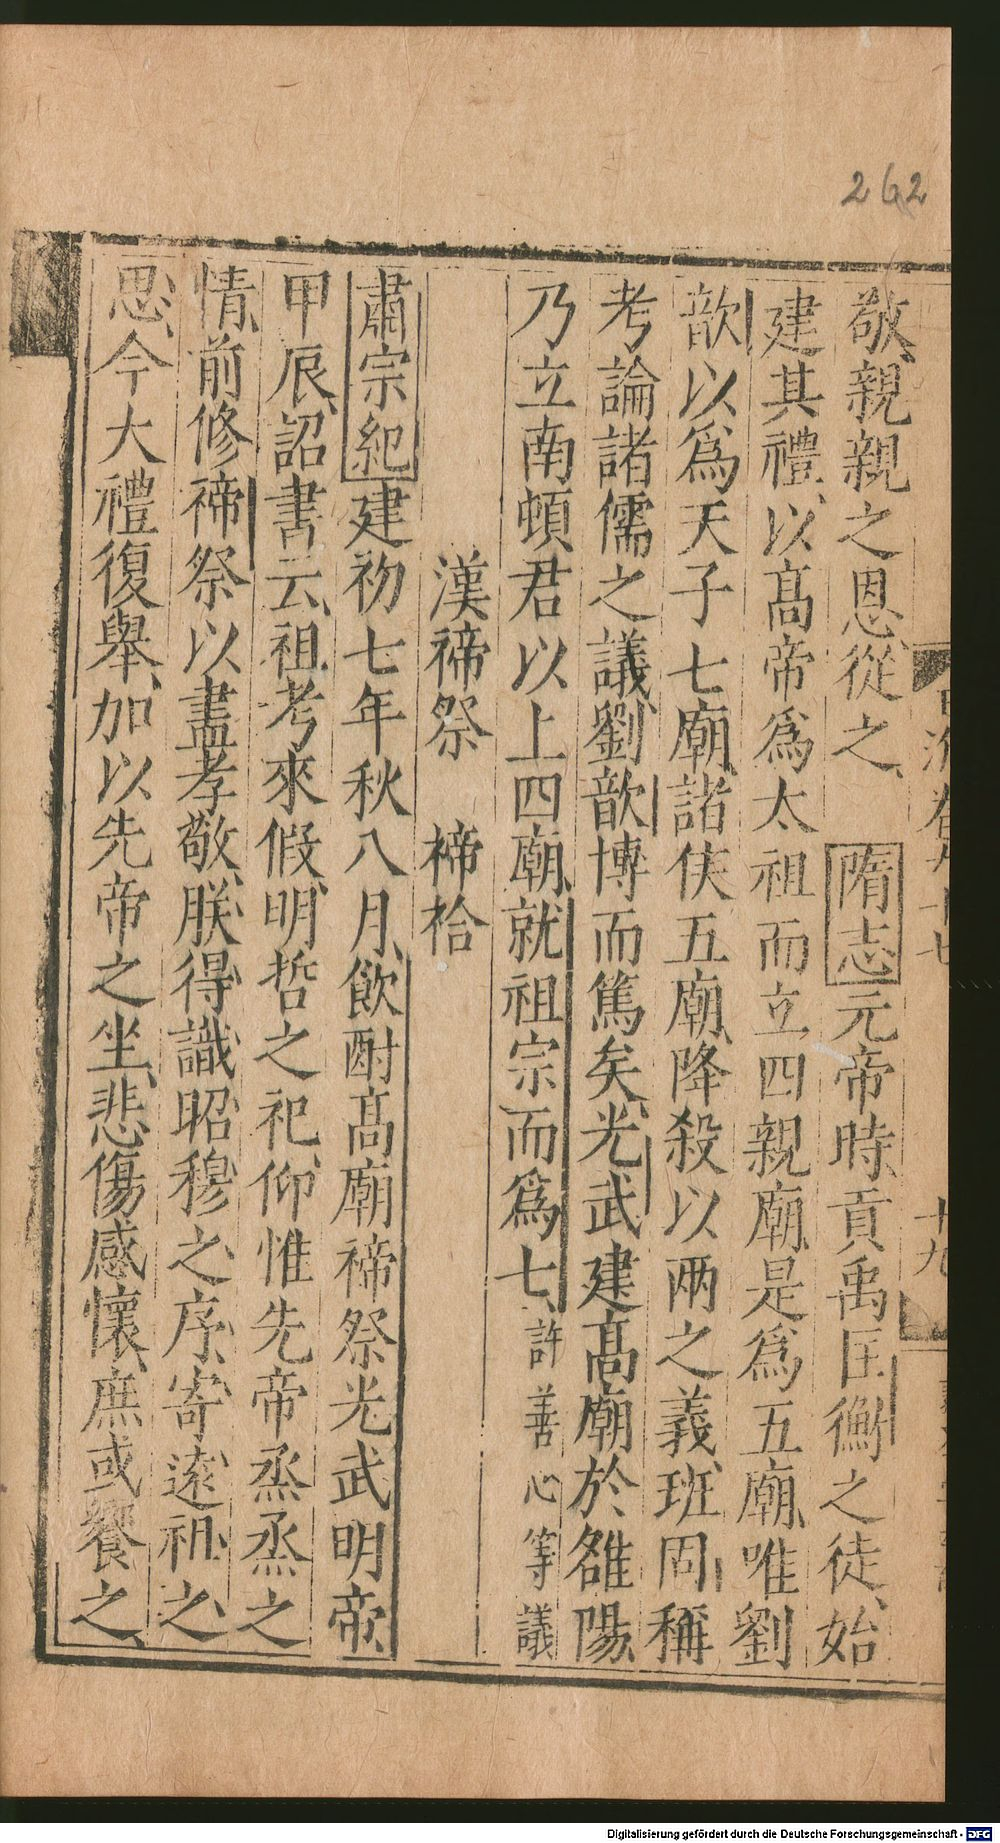 262
敬親親之恩從之 隋志元帝時貢禹匡衡之徒始
建其禮以高帝爲太祖而立四親廟是爲五廟唯劉
歆以爲天子七廟諸侯五廟降殺以兩之義班固稱
考論諸儒之議劉歆博而篤矣光武建高廟於雒陽
乃立南頓君以上四廟就祖宗而爲七許善心等議
漢禘祭 禘祫
肅宗紀建初七年秋八月飲酎高廟禘祭光武明帝
甲辰詔書云祖考來假明哲之祀仰惟先帝烝烝之
情前修禘祭以盡孝敬朕得識昭穆之序寄遠祖之
思今大禮復舉加以先帝之坐悲傷感懷庶或饗之
十九
Digitalisierung gefördert durch die Deutsche Forschungsgemeinschaft - DFG